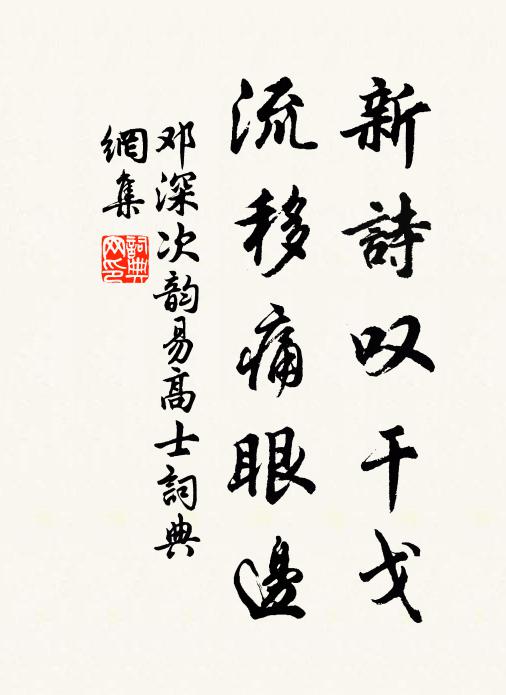 新詩叹干戈
流移痛眼邊
邓深次韵易高士詞典
網集
詞典网印